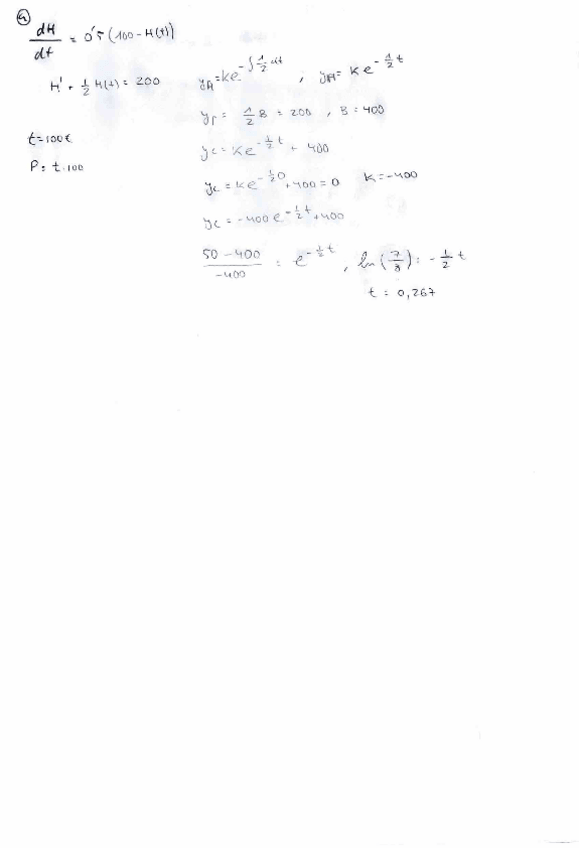 4)
dH/dt = 0'5 (100 - H(t))
H' + 1/2 H(t) = 200
t = 100€
P = t · 100
y_A = Ke^(-∫ 1/2 dt) , y_H = Ke^(-1/2 t)
y_p = 1/2 B = 200 , B = 400
y_c = Ke^(-1/2 t) + 400
y_c = Ke^(-1/2 0) + 400 = 0 K = -400
y_c = -400 e^(-1/2 t) + 400
(50 - 400)/(-400) = e^(-1/2 t) , ln(7/8) = -1/2 t
t = 0,267